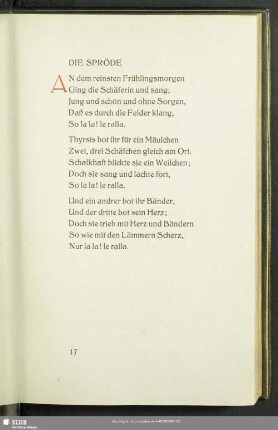 DIE SPRÖDE
AN dem reinsten Frühlingsmorgen
Ging die Schäferin und sang,
Jung und schön und ohne Sorgen,
Daß es durch die Felder klang,
So la la! le ralla.
Thyrsis bot ihr für ein Mäulchen
Zwei, drei Schäfchen gleich am Ort.
Schalkhaft blickte sie ein Weilchen;
Doch sie sang und lachte fort,
So la la! le ralla.
Und ein andrer bot ihr Bänder,
Und der dritte bot sein Herz;
Doch sie trieb mit Herz und Bändern
So wie mit den Lämmern Scherz,
Nur la la! le ralla.
17
SLUB